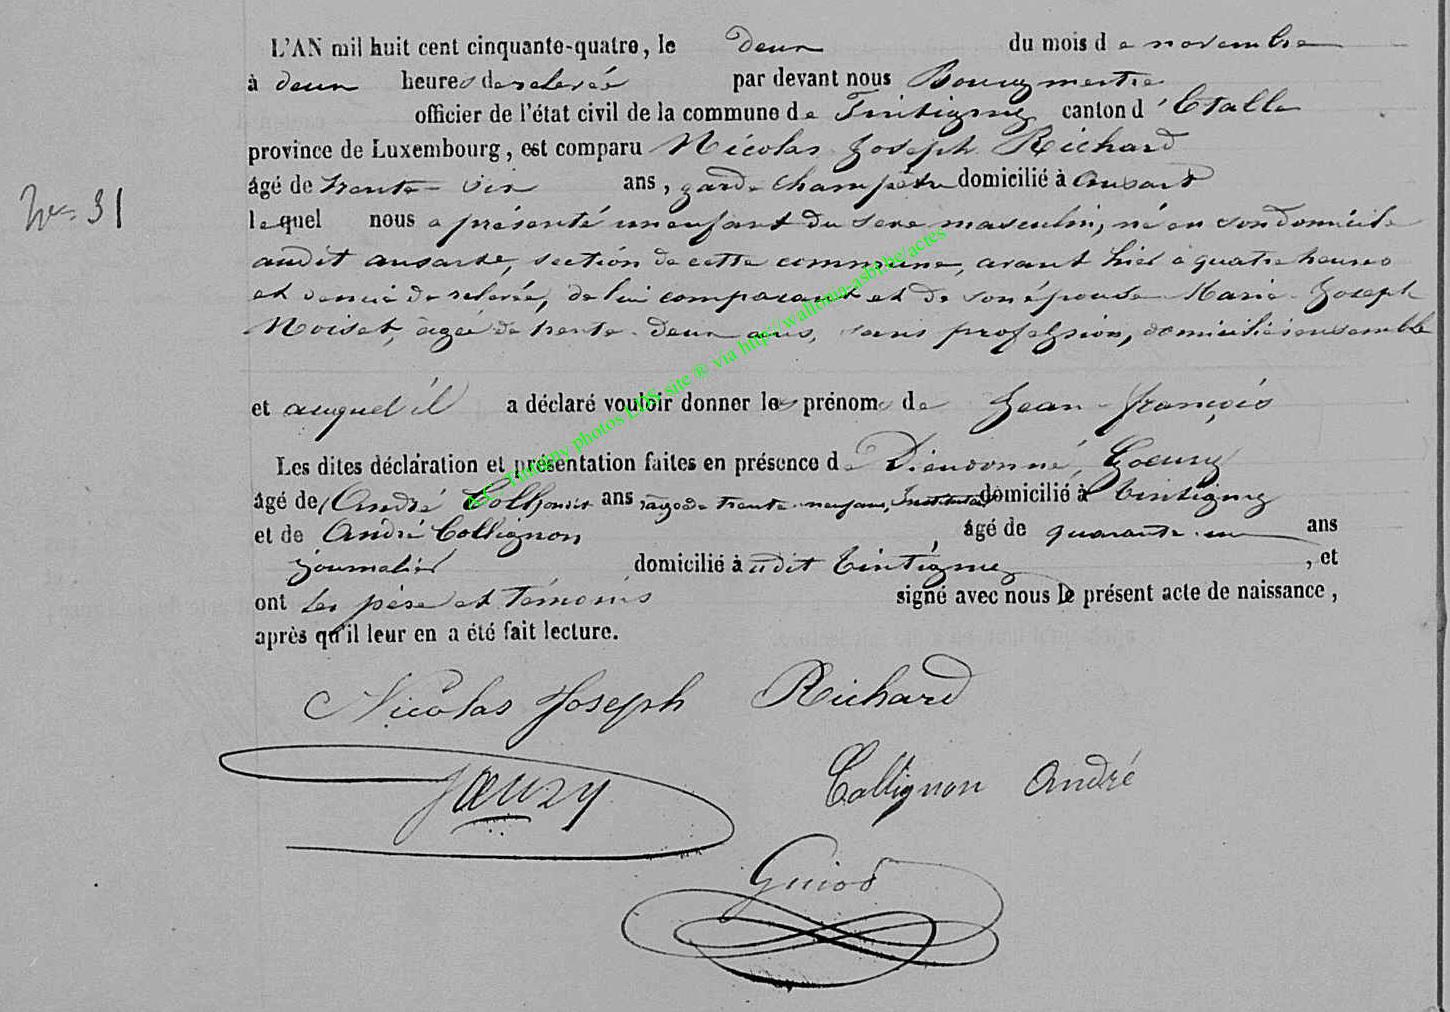 L'AN mil huit cent cinquante-quatre, le deux du mois de novembre
à deux heures de relevée par devant nous Bourgmestre
officier de l'état civil de la commune de Tintigny canton d'Etalle
province de Luxembourg, est comparu Nicolas Joseph Richard
âgé de trente-six ans, garde champêtre domicilié à Ansart
No 31
lequel nous a présenté un enfant du sexe masculin, né en son domicile
audit ansart, section de cette commune, avant hier à quatre heures
et demie de relevée, de lui comparant et de son épouse Marie Joseph
Noiset, âgée de trente-deux ans, sans profession, domiciliés ensemble
et auquel il a déclaré vouloir donner les prénoms de Jean-françois
Les dites déclaration et présentation faites en présence de Dieudonné Goeury
âgé de André ans âgé de trente-neuf ans, Instituteur domicilié à Tintigny
et de André Collignon, âgé de quarante-un ans
journalier domicilié à udit Tintigny, et
ont les père et témoins signé avec nous le présent acte de naissance,
après qu'il leur en a été fait lecture.
Nicolas Joseph Richard
Goeury
Collignon André
A.C. Tintigny photos LDS site ® via http://wallonia-asbl.be/actes